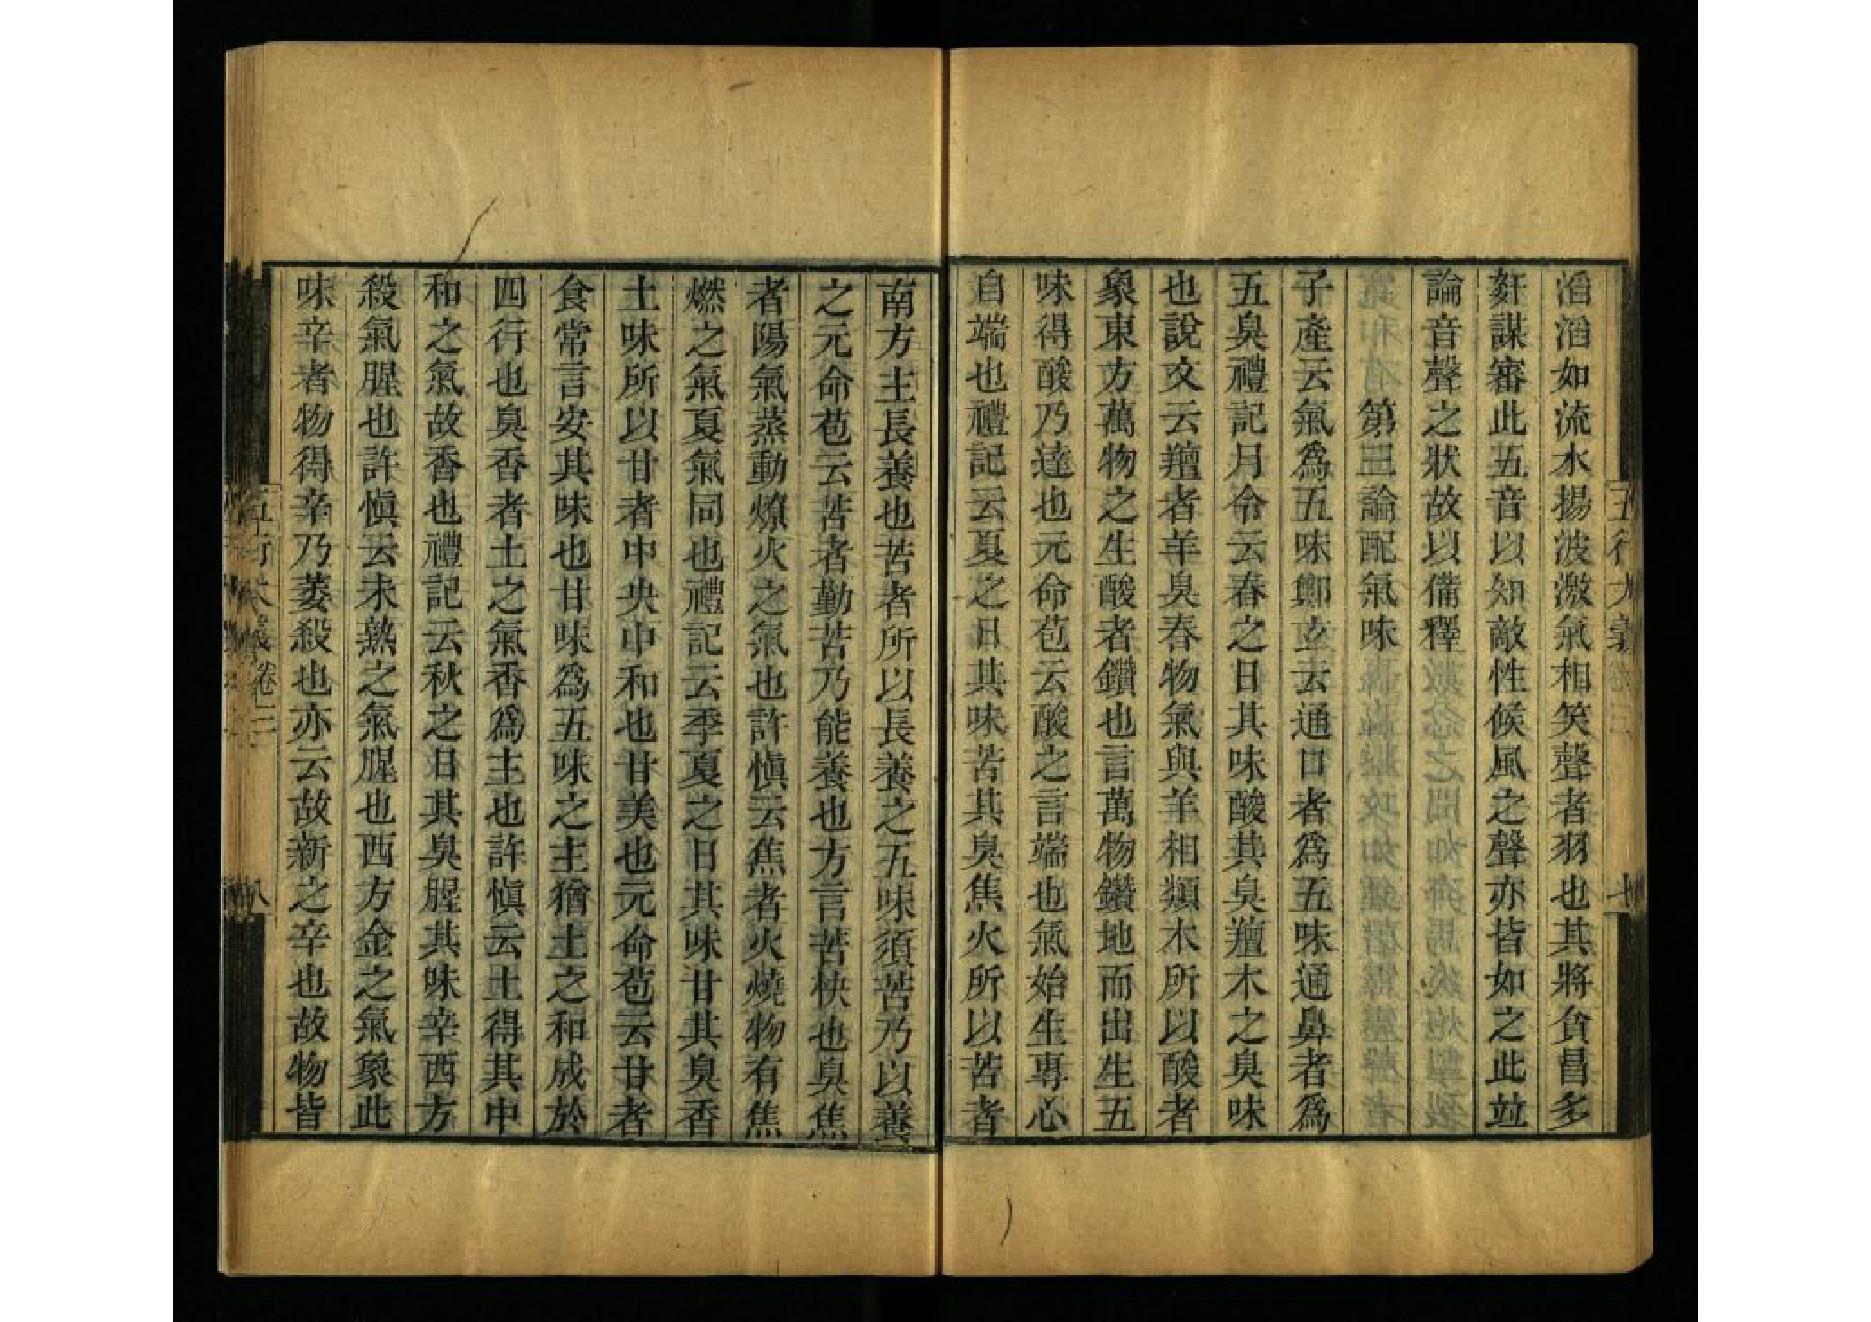 滔滔如流水揚波激氣相笑聲者羽也其將貪昌多
姧謀審此五音以知敵性候風之聲亦皆如之此竝
論音聲之狀故以備釋
第三論配氣味
子產云氣爲五味鄭玄云通口者爲五味通鼻者爲
五臭禮記月令云春之日其味酸其臭羶木之臭味
也說文云羶者羊臭春物氣與羊相類木所以酸者
象東方萬物之生酸者鑽也言萬物鑽地而出生五
味得酸乃達也元命苞云酸之言端也氣始生專心
自端也禮記云夏之日其味苦其臭焦火所以苦者
五行大義
七
南方主長養也苦者所以長養之五味須苦乃以養
之元命苞云苦者勤苦乃能養也方言苦快也臭焦
者陽氣蒸動燎火之氣也許愼云焦者火燒物有焦
燃之氣夏氣同也禮記云季夏之日其味甘其臭香
土味所以甘者中央中和也甘美也元命苞云甘者
食常言安其味也甘味爲五味之主猶土之和成於
四行也臭香者土之氣香爲主也許愼云土得其中
和之氣故香也禮記云秋之日其臭腥其味辛西方
殺氣腥也許愼云未熟之氣腥也西方金之氣象此
味辛者物得辛乃萎殺也亦云故新之辛也故物皆
五行大義 卷三
八